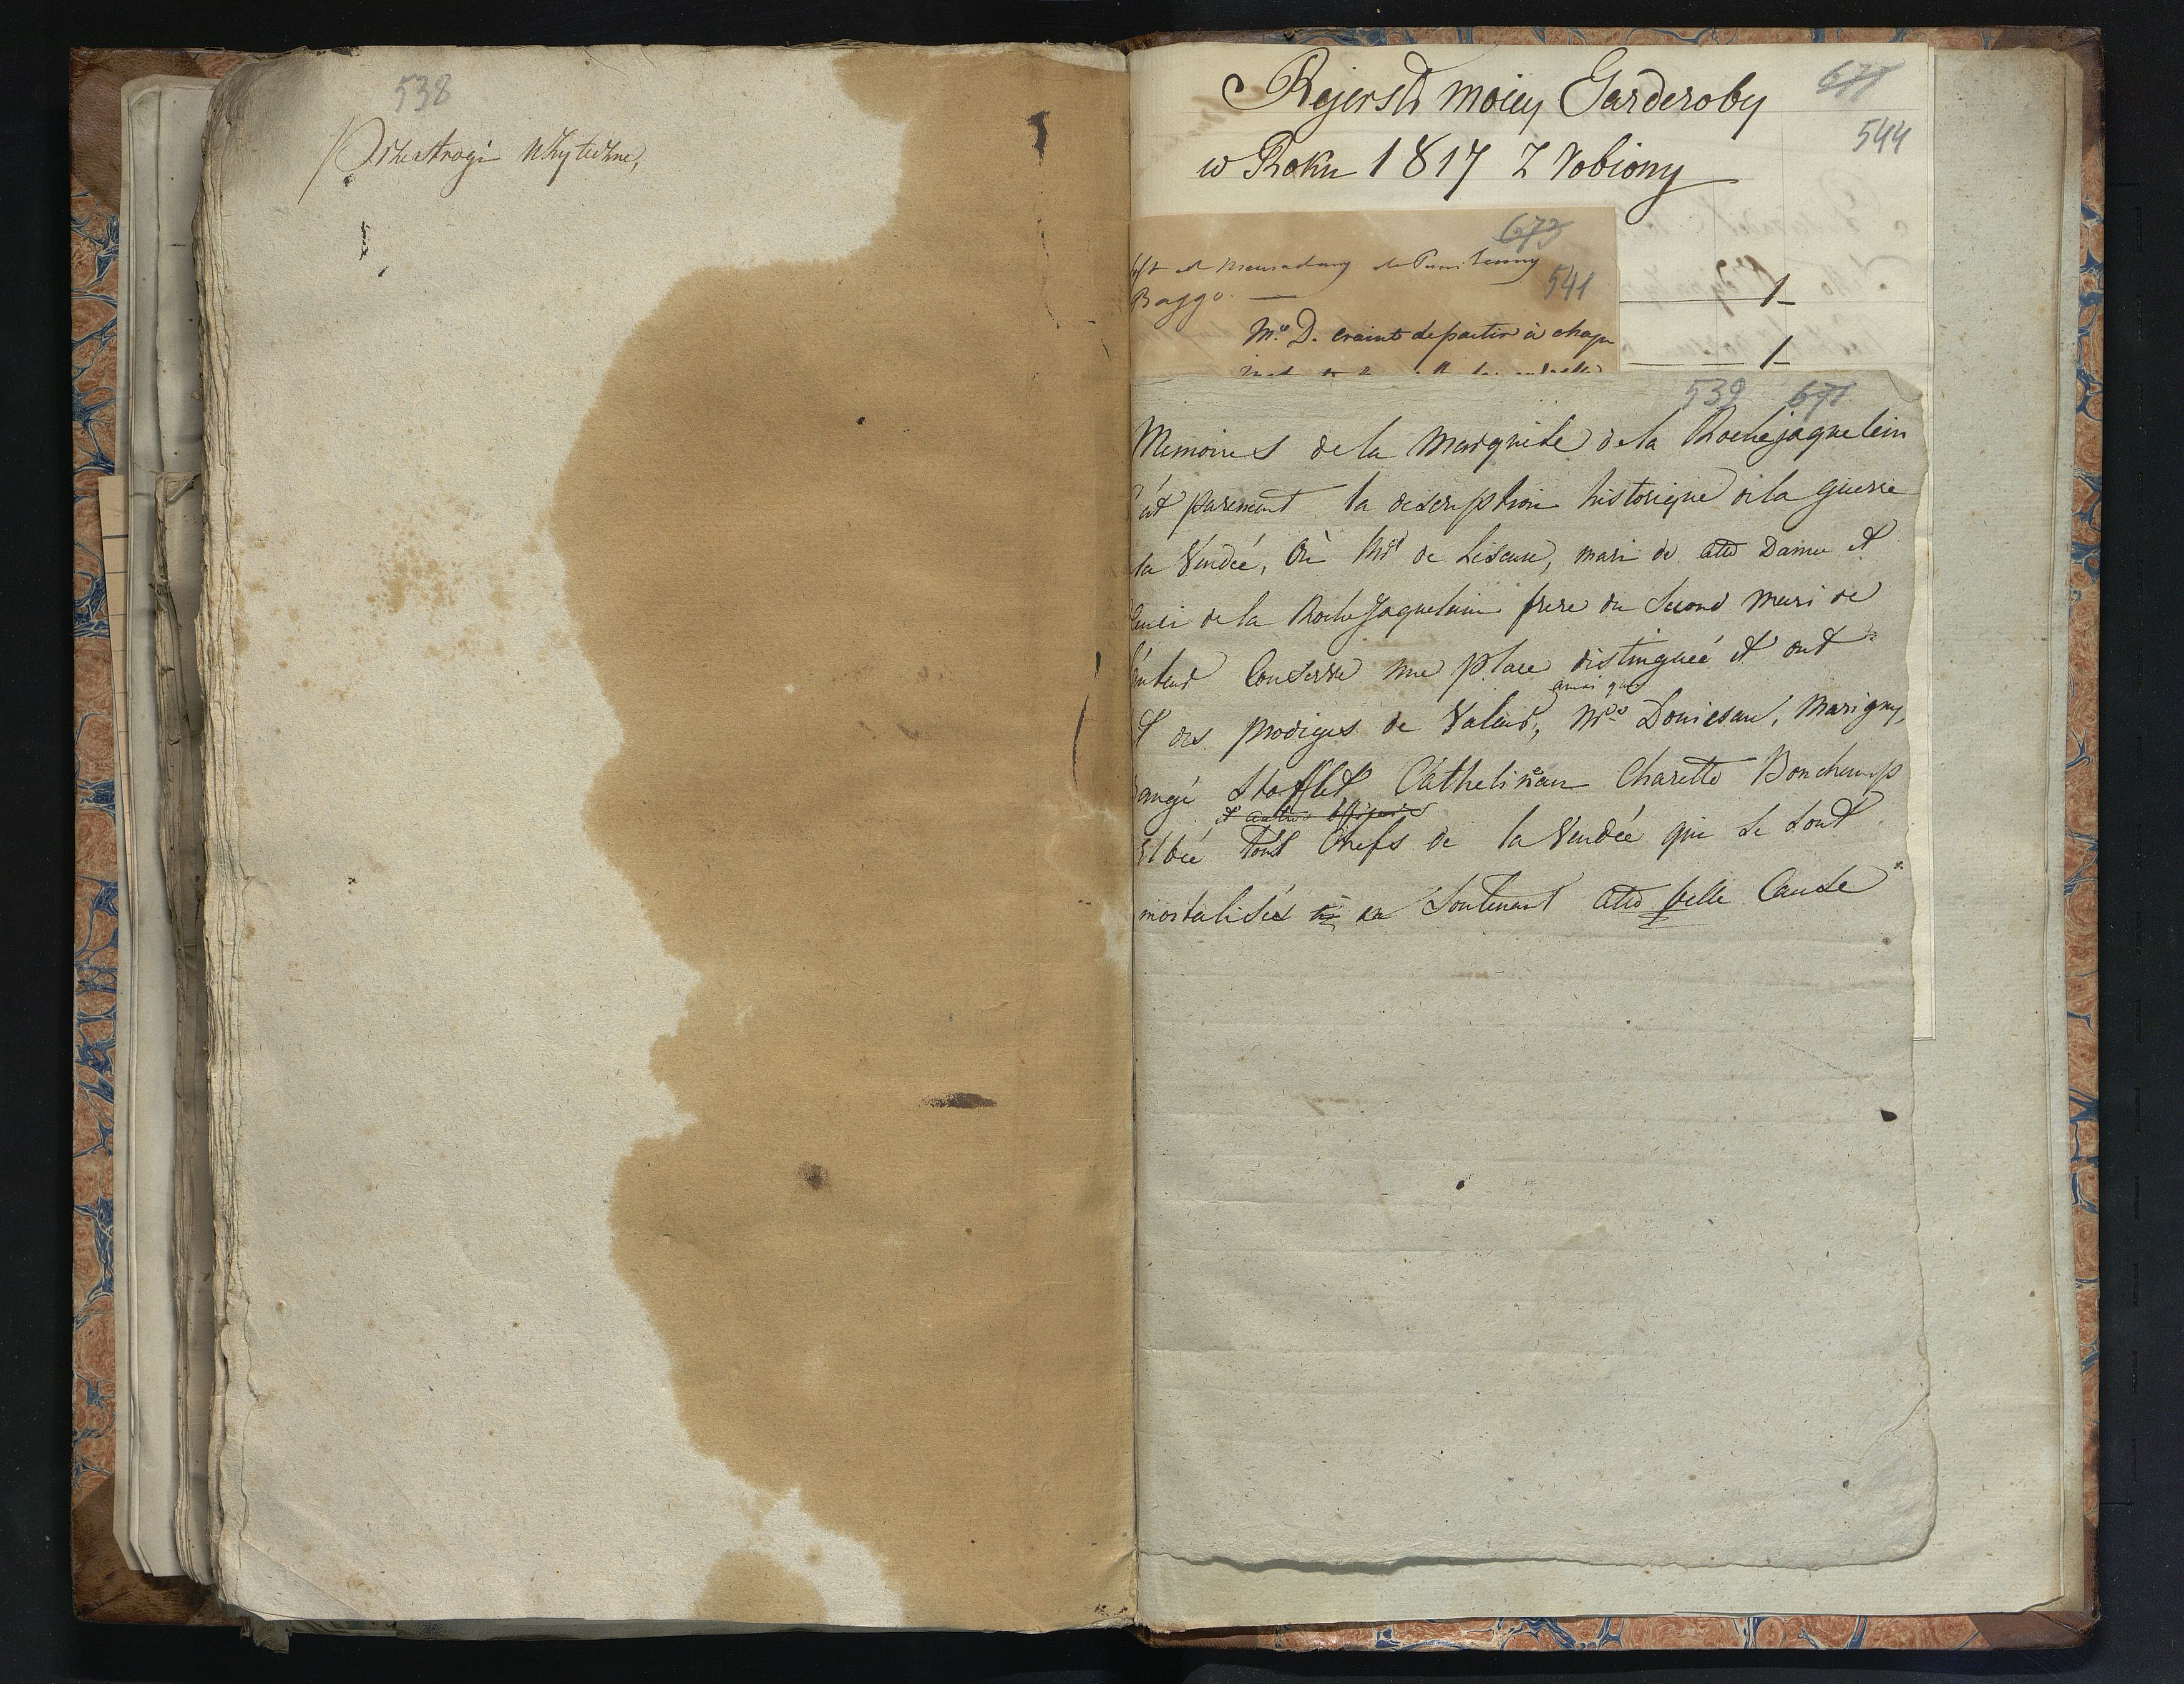 538
Przestrogi Użyteczne,
Rejestr moiey Garderoby
677
544
w Roku 1817 Zrobiony
673
541
Baggo. —
1
Mr. D. craint de partir à chaqu
1
539 671
Memoires de la Marquise de la Rochejaquelein
purement la description historique de la guerre
la Vendée, Où Mr de Lescure, mari de cette Dame et
de la RocheJaquelein frere du Second mari de
Conserve une place distinguée et ont
ainsi que
des prodiges de Valeur, Mrs Donissau, Marigny,
Stofflet Cathelineau Charette Bonchamp
et autres officiers
Elbée Tous Chefs de la Vendée qui se sont
mortalisés en Soutenant cette belle Cause